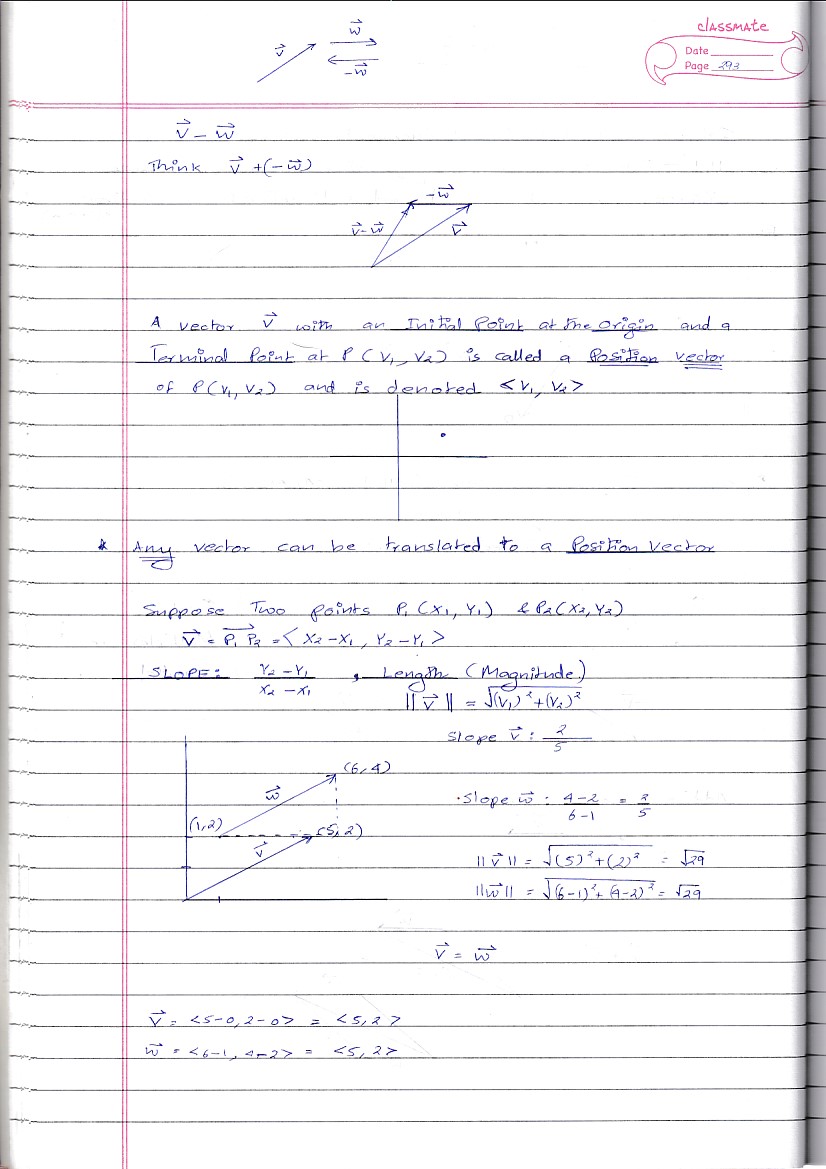 classmate
Date
Page 293
v⃗ w⃗
-w⃗
v⃗ - w⃗
Think v⃗ +(-w⃗)
-w⃗
v⃗-w⃗ v⃗
A vector v⃗ with an Initial Point at the origin and a
Terminal Point at P (V₁, V₂) is called a Position vector
of P(V₁, V₂) and is denoted <V₁, V₂>
* Any vector can be translated to a Position Vector
Suppose Two points P₁ (X₁, Y₁) & P₂(X₂, Y₂)
v⃗ = P₁P₂ = < X₂-X₁, Y₂-Y₁ >
SLOPE: (Y₂-Y₁)/(X₂-X₁) , Length (Magnitude)
||v⃗|| = √(V₁)²+(V₂)²
Slope v⃗ : 2/5
(6,4)
w⃗
·Slope w⃗ : (4-2)/(6-1) = 2/5
(1,2) (5,2)
v⃗
||v⃗|| = √(5)²+(2)² = √29
||w⃗|| = √(6-1)²+(4-2)² = √29
v⃗ = w⃗
v⃗ = <5-0, 2-0> = <5,2>
w⃗ = <6-1, 4-2> = <5,2>